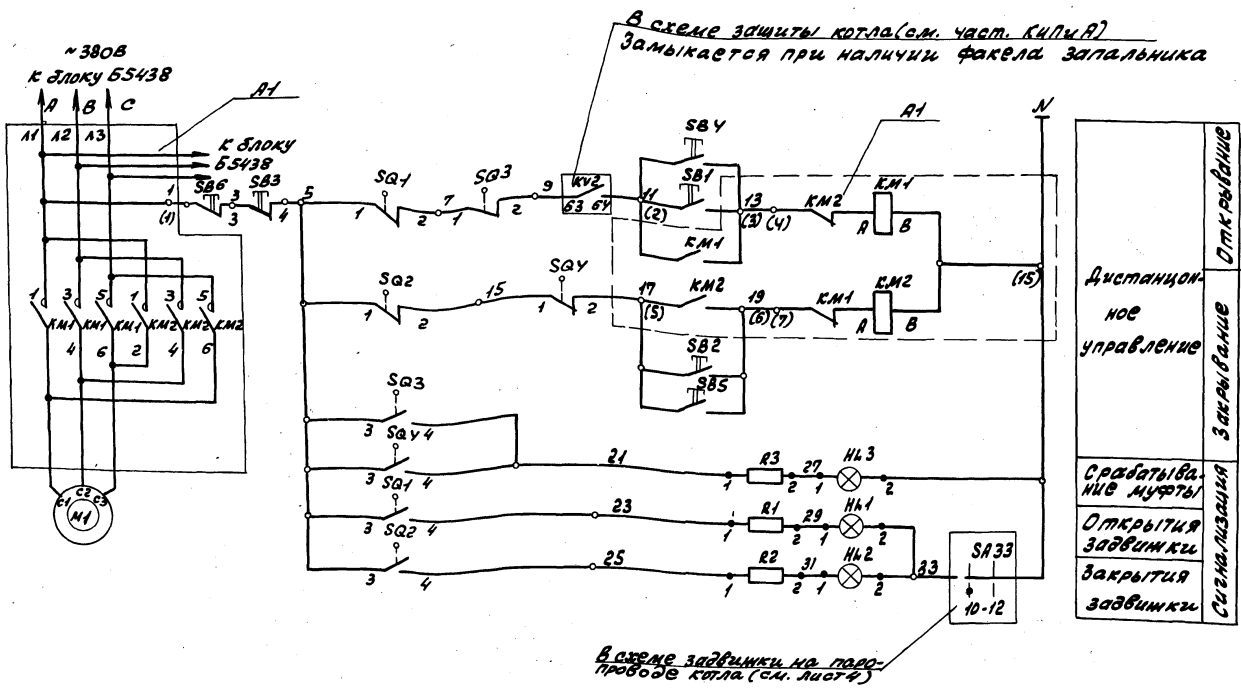 В схеме защиты котла (см. част. КИПиА)
Замыкается при наличии факела запальника
~380В
К блоку Б5438
А В С
А1
Л1 Л2 Л3
К блоку
Б5438
1
(1)
SB6
3
3
SB3
4
5
SQ1
1 2
7
SQ3
1 2
9
KV2
63 64
11
(2)
SB4
SB1
KM1
13
(3) (4)
KM2
А1
KM1
А В
N
(15)
SQ2
1 2
15
SQ4
1 2
17
(5)
KM2
19
(6) (7)
KM1
KM2
А В
SB2
SB5
1 3 5 1 3 5
KM1 KM1 KM1 KM2 KM2 KM2
4 6 2 4 6
С1 С2 С3
М1
SQ3
3 4
SQ4
3 4
21
1
R3
2
27
1
HL3
2
SQ1
3 4
23
1
R1
2
29
1
HL1
2
SQ2
3 4
25
1
R2
2
31
1
HL2
2
33
SA33
10-12
В схеме задвижки на паро-
проводе котла (см. лист 4)
Дистанцион-
ное
управление
Открывание
Закрывание
Срабатыва-
ние муфты
Открытия
задвижки
Закрытия
задвижки
Сигнализация